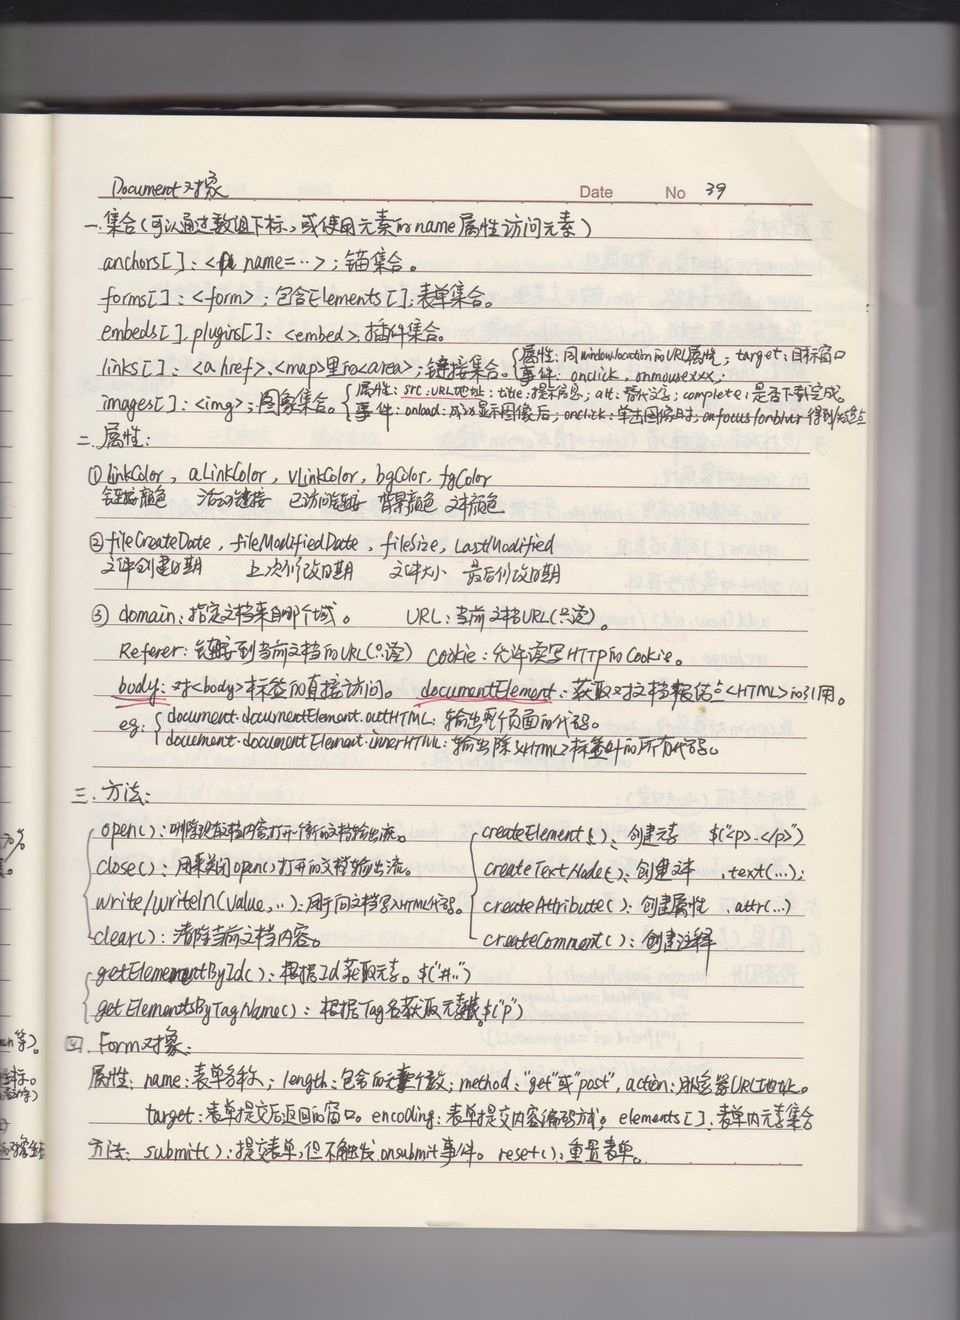 Document对象
Date No 39
一.集合(可以通过数组下标,或使用元素的name属性访问元素)
anchors[]: <a name=…>;锚集合。
forms[]: <form>;包含Elements[];表单集合。
embeds[].plugins[]: <embed>;插件集合。
links[]: <a href>,<map>里的<area>;链接集合。{属性:同window.location的URL属性; target:目标窗口
事件: onclick, onmousexxx;
images[]: <img>;图象集合。{属性: src:URL地址; title:提示信息; alt:替代文字; complete:是否下载完成。
事件: onload:成功显示图像后; onclick:单击图像时; onfocus/onblur
二.属性:
① linkColor, aLinkColor, vLinkColor, bgColor, fgColor
链接颜色 活动链接 已访问链接 背景颜色 文本颜色
② fileCreateDate, fileModifiedDate, fileSize, LastModified
文件创建日期 上次修改日期 文件大小 最后修改日期
③ domain:指定文档来自哪个域。 URL:当前文档URL(只读)。
Referer:链接到当前文档的URL(只读) Cookie:允许读写HTTP的Cookie。
body:对<body>标签的直接访问。 documentElement:获取对文档根结点<HTML>的引用。
eg: {document.documentElement.outHTML:输出整个页面的代码。
document.documentElement.innerHTML:输出除<HTML>标签外的所有代码。
三.方法:
open():删除现有文档内容打开一个新的文档输出流。 createElement():创建元素 $("<p>.</p>")
close():用来关闭open()打开的文档输出流。 createTextNode():创建文本 .text(…);
write/writeln(value,…):用于向文档写入HTML代码。 createAttribute():创建属性 .attr(…)
clear():清除当前文档内容。 createComment():创建注释
getElementById():根据Id获取元素。$("#..")
getElementsByTagName():根据Tag名获取元素集。$("p")
四. Form对象:
属性: name:表单名称; length:包含的元素个数; method:"get"或"post", action:服务器URL地址。
target:表单提交后返回的窗口。encoding:表单提交内容编码方式; elements[]:表单内元素集合
方法: submit():提交表单,但不触发onsubmit事件。reset():重置表单。